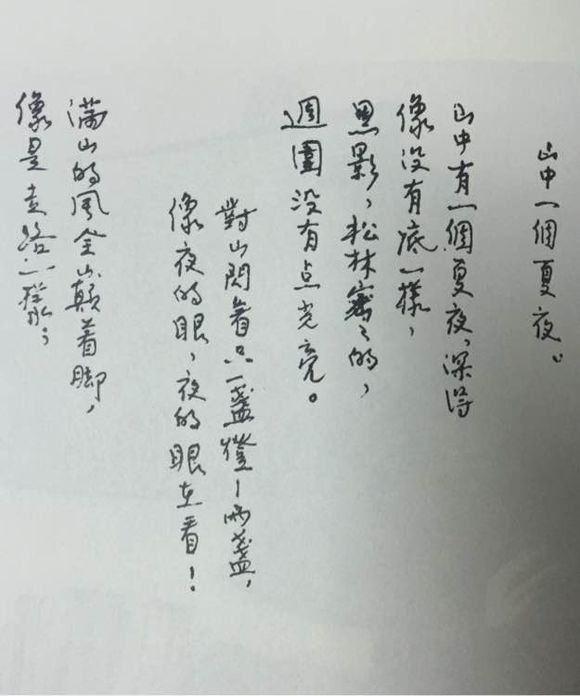 山中一個夏夜。
山中有一個夏夜，深得
像没有底一樣，
黑影，松林密々的，
週圍没有点光亮。
對山閃着只一盞燈－兩盞，
像夜的眼，夜的眼在看！
满山的風全躡着脚，
像是走路一樣；